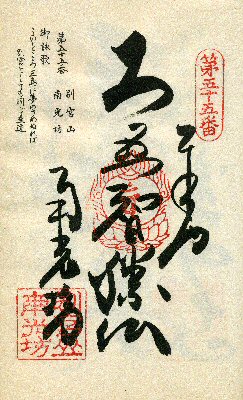 第五十五番
大通智勝仏
南光坊
別宮山
南光坊
別宮山
第五十五番 南光坊
御詠歌
このところ三島に夢のさめぬれば
別宮とても同じ垂迹